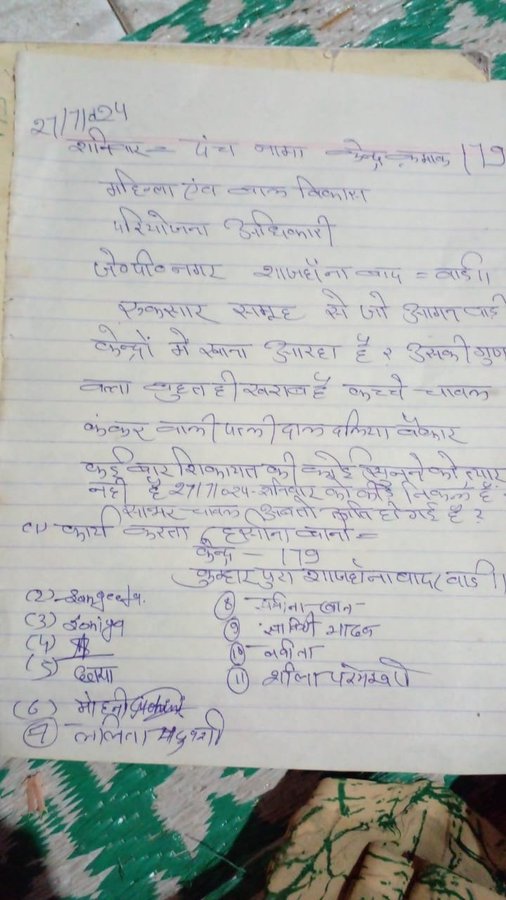 27/7/024
शनिवार = पंच नामा केन्द्र क्रमांक 179
महिला एंव बाल विकास
परियोजना अधिकारी
जे०पी०नगर शाजहॉना बाद = वार्ड 11
एकसार समूह से जो आगन वाडी
केन्द्रों मे खाना आरहा है २ उसकी गुण
वत्ता बहुत ही खराब है कच्चे चावल
कंकर वाली पतली दाल दलिया बेकार
कई बार शिकायत की कोई सुनने को त्यार
नही है 27/7/024-शनिवार को कीड़े निकले है
चावल अब तो हो गई है ?
(1) कार्य करता हसीना बानो =
केन्द्र - 179
कुम्हार पुरा शाजहॉनाबाद (वार्ड
(2) Sangeeta.
(3)
(4)
(5) छाया
(6) मोहनी
(7) ललिता
(8) खान
(9) सावित्री यादव
(10) बबीता
(11) शीला